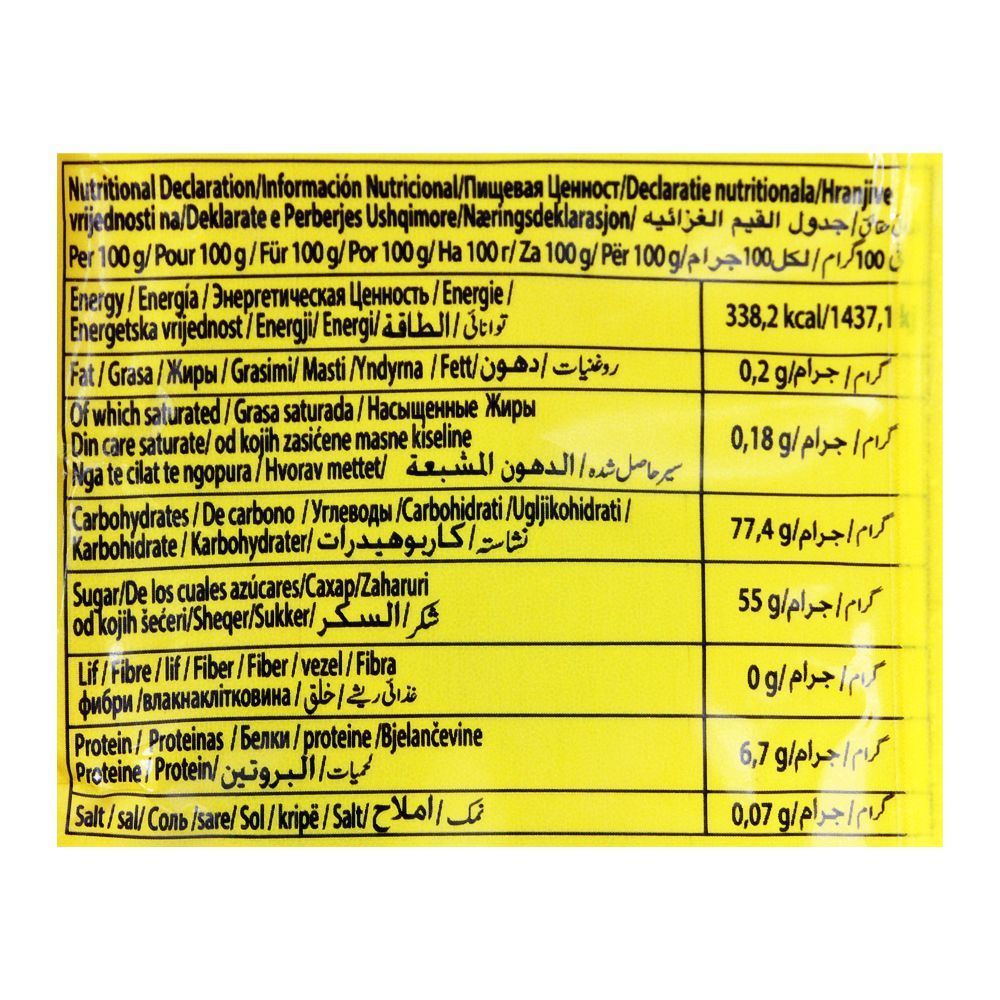 Nutritional Declaration/Información Nutricional/Пищевая Ценност/Declaratie nutritionala/Hranjive
vrijednosti na/Deklarate e Perberjes Ushqimore/Næringsdeklarasjon/ جدول القيم الغزائيه/
Per 100 g/ Pour 100 g / Für 100 g/ Por 100 g/ Ha 100 г/ Za 100 g/ Për 100 g/لكل100جرام/ 100گرام
Energy / Energía / Энергетическая Ценность / Energie /
Energetska vrijednost / Energji/ Energi/الطاقة/ توانائی
338,2 kcal/1437,1
Fat / Grasa / Жиры / Grasimi/ Masti /Yndyrna / Fett/دهون/ روغنیات
0,2 g/جرام/گرام
Of which saturated / Grasa saturada / Насыщенные Жиры
Din care saturate/ od kojih zasićene masne kiseline
Nga te cilat te ngopura / Hvorav mettet/ الدهون المشبعة/ سیر حاصل شدہ
0,18 g/جرام/گرام
Carbohydrates / De carbono / Углеводы /Carbohidrati /Ugljikohidrati /
Karbohidrate / Karbohydrater/كاربوهيدرات/ نشاستہ
77,4 g/جرام/گرام
Sugar/De los cuales azúcares/Сахар/Zaharuri
od kojih šećeri/Sheqer/Sukker/السكر/ شکر
55 g/جرام/گرام
Lif / Fibre / lif / Fiber / Fiber / vezel / Fibra
фибри /влакнаклітковина / خلق/ غذائی ریشے
0 g/جرام/گرام
Protein / Proteinas / Белки / proteine /Bjelančevine
Proteine / Protein/البروتين/ لحمیات
6,7 g/جرام/گرام
Salt / sal/ Соль /sare/ Sol / kripë / Salt/ املاح/ نمک
0,07 g/جرام/گرام